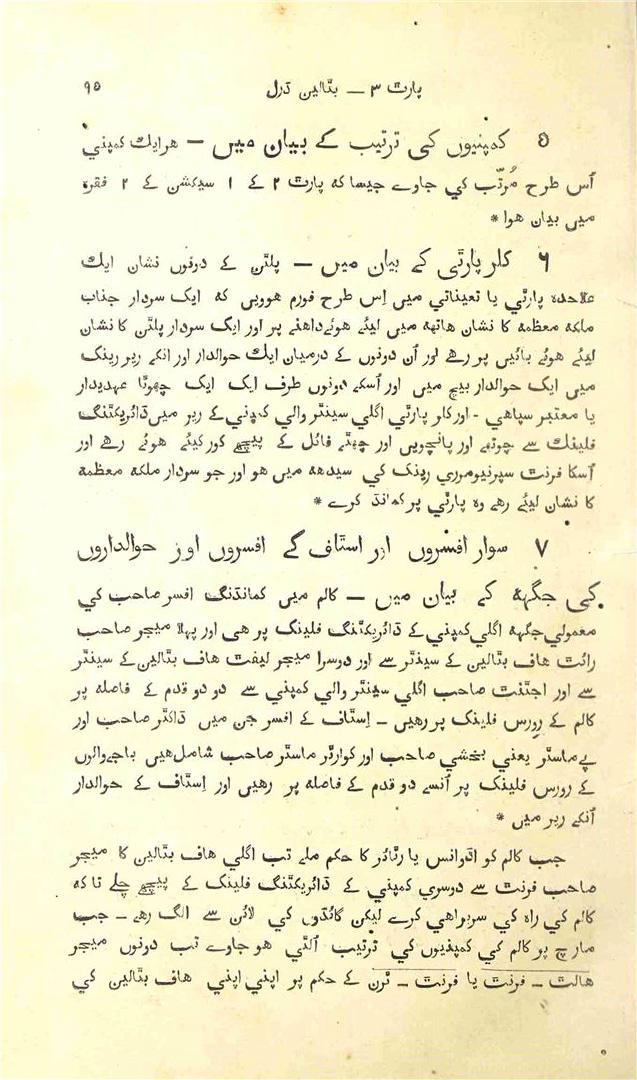 پارٹ ۳ — بٹالین ڈرل ۹۵
۵ کمپنیوں کی ترتیب کے بیان میں — هر ایك کمپنی
اُس طرح مُرتّب کی جاوے جیسا که پارٹ ۲ کے ۱ سیکشن کے ۲ فقرہ
میں بیان هوا *
۶ کلر پارٹی کے بیان میں — پلٹن کے دونوں نشان ایك
علاحدہ پارٹی یا تعیناتی میں اِس طرح فورم هوویں که ایک سردار جناب
ملکه معظمه کا نشان هاتهه میں لیئے هوئے داهنے پر اور ایک سردار پلٹن کا نشان
لیئے هوئے بائیں پر رهے اور اُن دونوں کے درمیان ایك حوالدار اور انکے ریر رینک
میں ایک حوالدار بیچ میں اور اُسکے دونوں طرف ایک ایک چهوٹا عہدیدار
یا معتبر سپاهی - اور کلر پارٹی اگلی سینٹر والی کمپنی کے ریر میں ڈائریکٹنگ
فلینک سے چوتهے اور پانچویں اور چهٹے فائل کے پیچهے کور کیئے هوئے رهے اور
اُسکا فرنٹ سپرنیومرری رینک کی سیدهه میں هو اور جو سردار ملکه معظمه
کا نشان لیئے رهے وہ پارٹی پر کمانڈ کرے *
۷ سوار افسروں اور اسٹاف کے افسروں اور حوالداروں
کی جگہه کے بیان میں — کالم میں کمانڈنگ افسر صاحب کی
معمولی جگہه اگلی کمپنی کے ڈائریکٹنگ فلینک پر هی اور پہلا میجر صاحب
رائٹ هاف بٹالین کے سینٹر سے اور دوسرا میجر لیفٹ هاف بٹالین کے سینٹر
سے اور اجٹنٹ صاحب اگلی سینٹر والی کمپنی سے دو دو قدم کے فاصله پر
کالم کے رورس فلینک پر رهیں — اِسٹاف کے افسر جن میں ڈاکٹر صاحب اور
پے ماسٹر یعنی بخشی صاحب اور کوارٹر ماسٹر صاحب شامل هیں باجے والوں
کے رورس فلینک پر اُنسے دو قدم کے فاصله پر رهیں اور اِسٹاف کے حوالدار
اُنکے ریر میں *
جب کالم کو اڈوانس یا رٹائر کا حکم ملے تب اگلی هاف بٹالین کا میجر
صاحب فرنٹ سے دوسری کمپنی کے ڈائریکٹنگ فلینک کے پیچهے چلے تا که
کالم کی راہ کی سربراهی کرے لیکن گائڈوں کی لائن سے الگ رهے — جب
مارچ پر کالم کی کمپنیوں کی ترتیب اُلٹی هو جاوے تب دونوں میجر
هالٹ — فرنٹ یا فرنٹ — ٹرن کے حکم پر اپنی اپنی هاف بٹالین کی